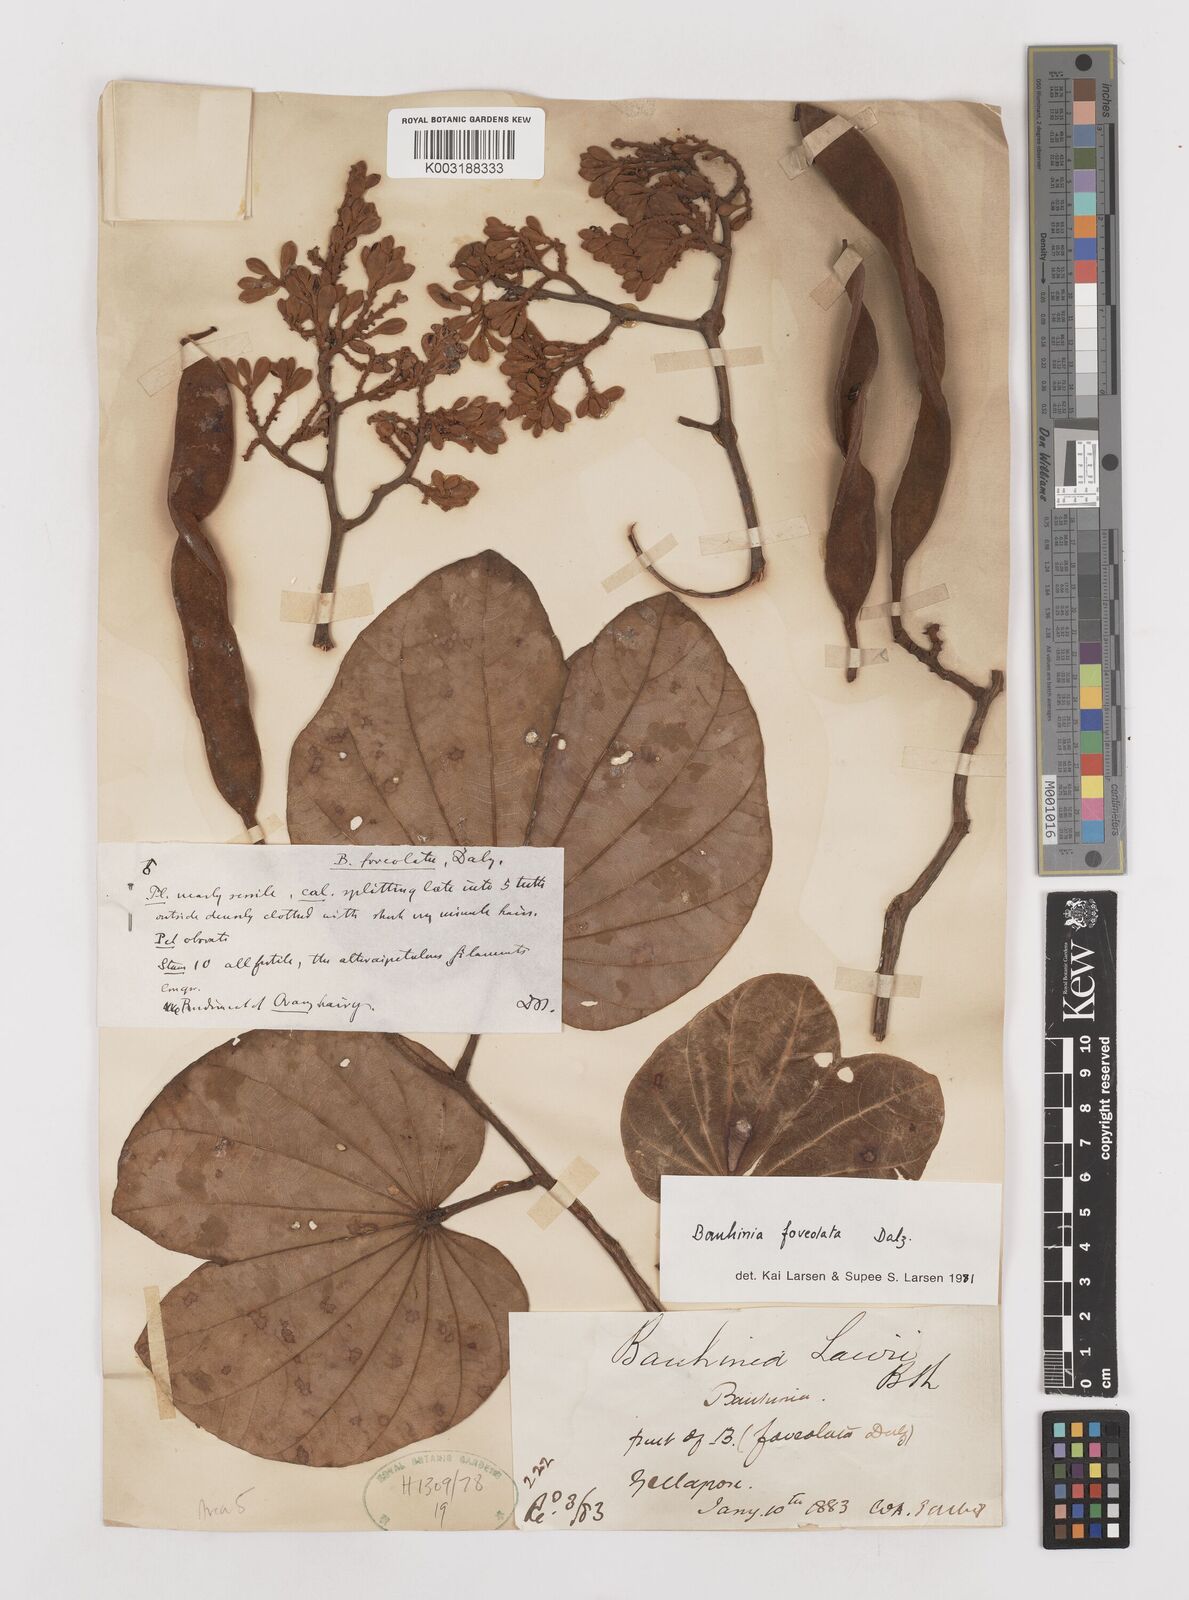 ROYAL BOTANIC GARDENS KEW
K003188333
B. foveolata, Dalz.
Fl. nearly sessile, cal. splitting late into 5 teeth
outside densely clothed with short minute hairs.
Pet obovate
Stam 10 all fertile, the alternipetalous filaments
longr.
Rudiment of Ovary hairy.
Bauhinia foveolata Dalz.
det. Kai Larsen & Supee S. Larsen 1981
Bauhinia Lawii
Bth
Bauhinia.
B. (foveolata Dalz)
Yellapore.
Jany. 10th 1883
222
Rec. 3/83
ROYAL BOTANIC GARDENS
H1309/78
19
Area 5
inches
centimetres
Density
Don Williams
M001016
Kew
Royal Botanic Gardens
copyright reserved
0 1 2 3 4 5 6 7 8 9 10
cm